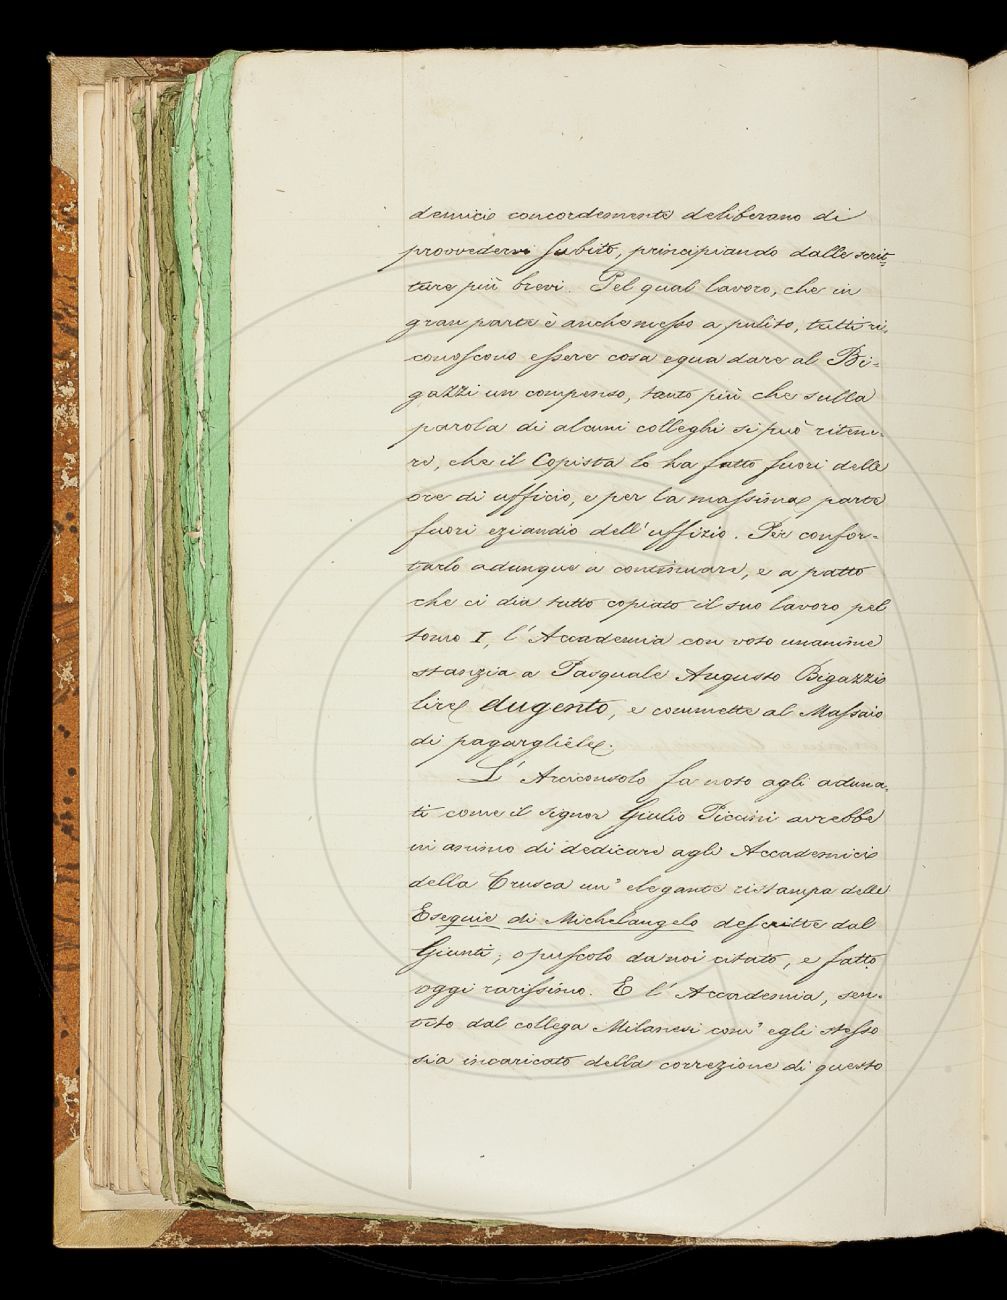 demici concordemente deliberano di
provvedervi subito, principiando dalle scrit-
ture più brevi. Pel qual lavoro, che in
gran parte è anche messo a pulito, tutti ri-
conoscono essere cosa equa dare al Bi-
gazzi un compenso, tanto più che sulla
parola di alcuni colleghi si può ritene-
re, che il Copista lo ha fatto fuori delle
ore di ufficio, e per la massima parte
fuori eziandio dell'uffizio. Per confor-
tarlo adunque a continuare, e a patto
che ci dia tutto copiato il suo lavoro pel
tomo I, l'Accademia con voto unanime
stanzia a Pasquale Augusto Bigazzi
lire dugento, e commette al Massaio
di pagargliele.
L'Arciconsolo fa noto agli aduna-
ti come il signor Giulio Piccini avrebbe
in animo di dedicare agli Accademici
della Crusca un'elegante ristampa delle
Esequie di Michelangelo descritte dal
Giunti, opuscolo da noi citato, e fatto
oggi rarissimo. E l'Accademia, sen-
tito dal collega Milanesi com'egli stesso
sia incaricato della correzione di questo